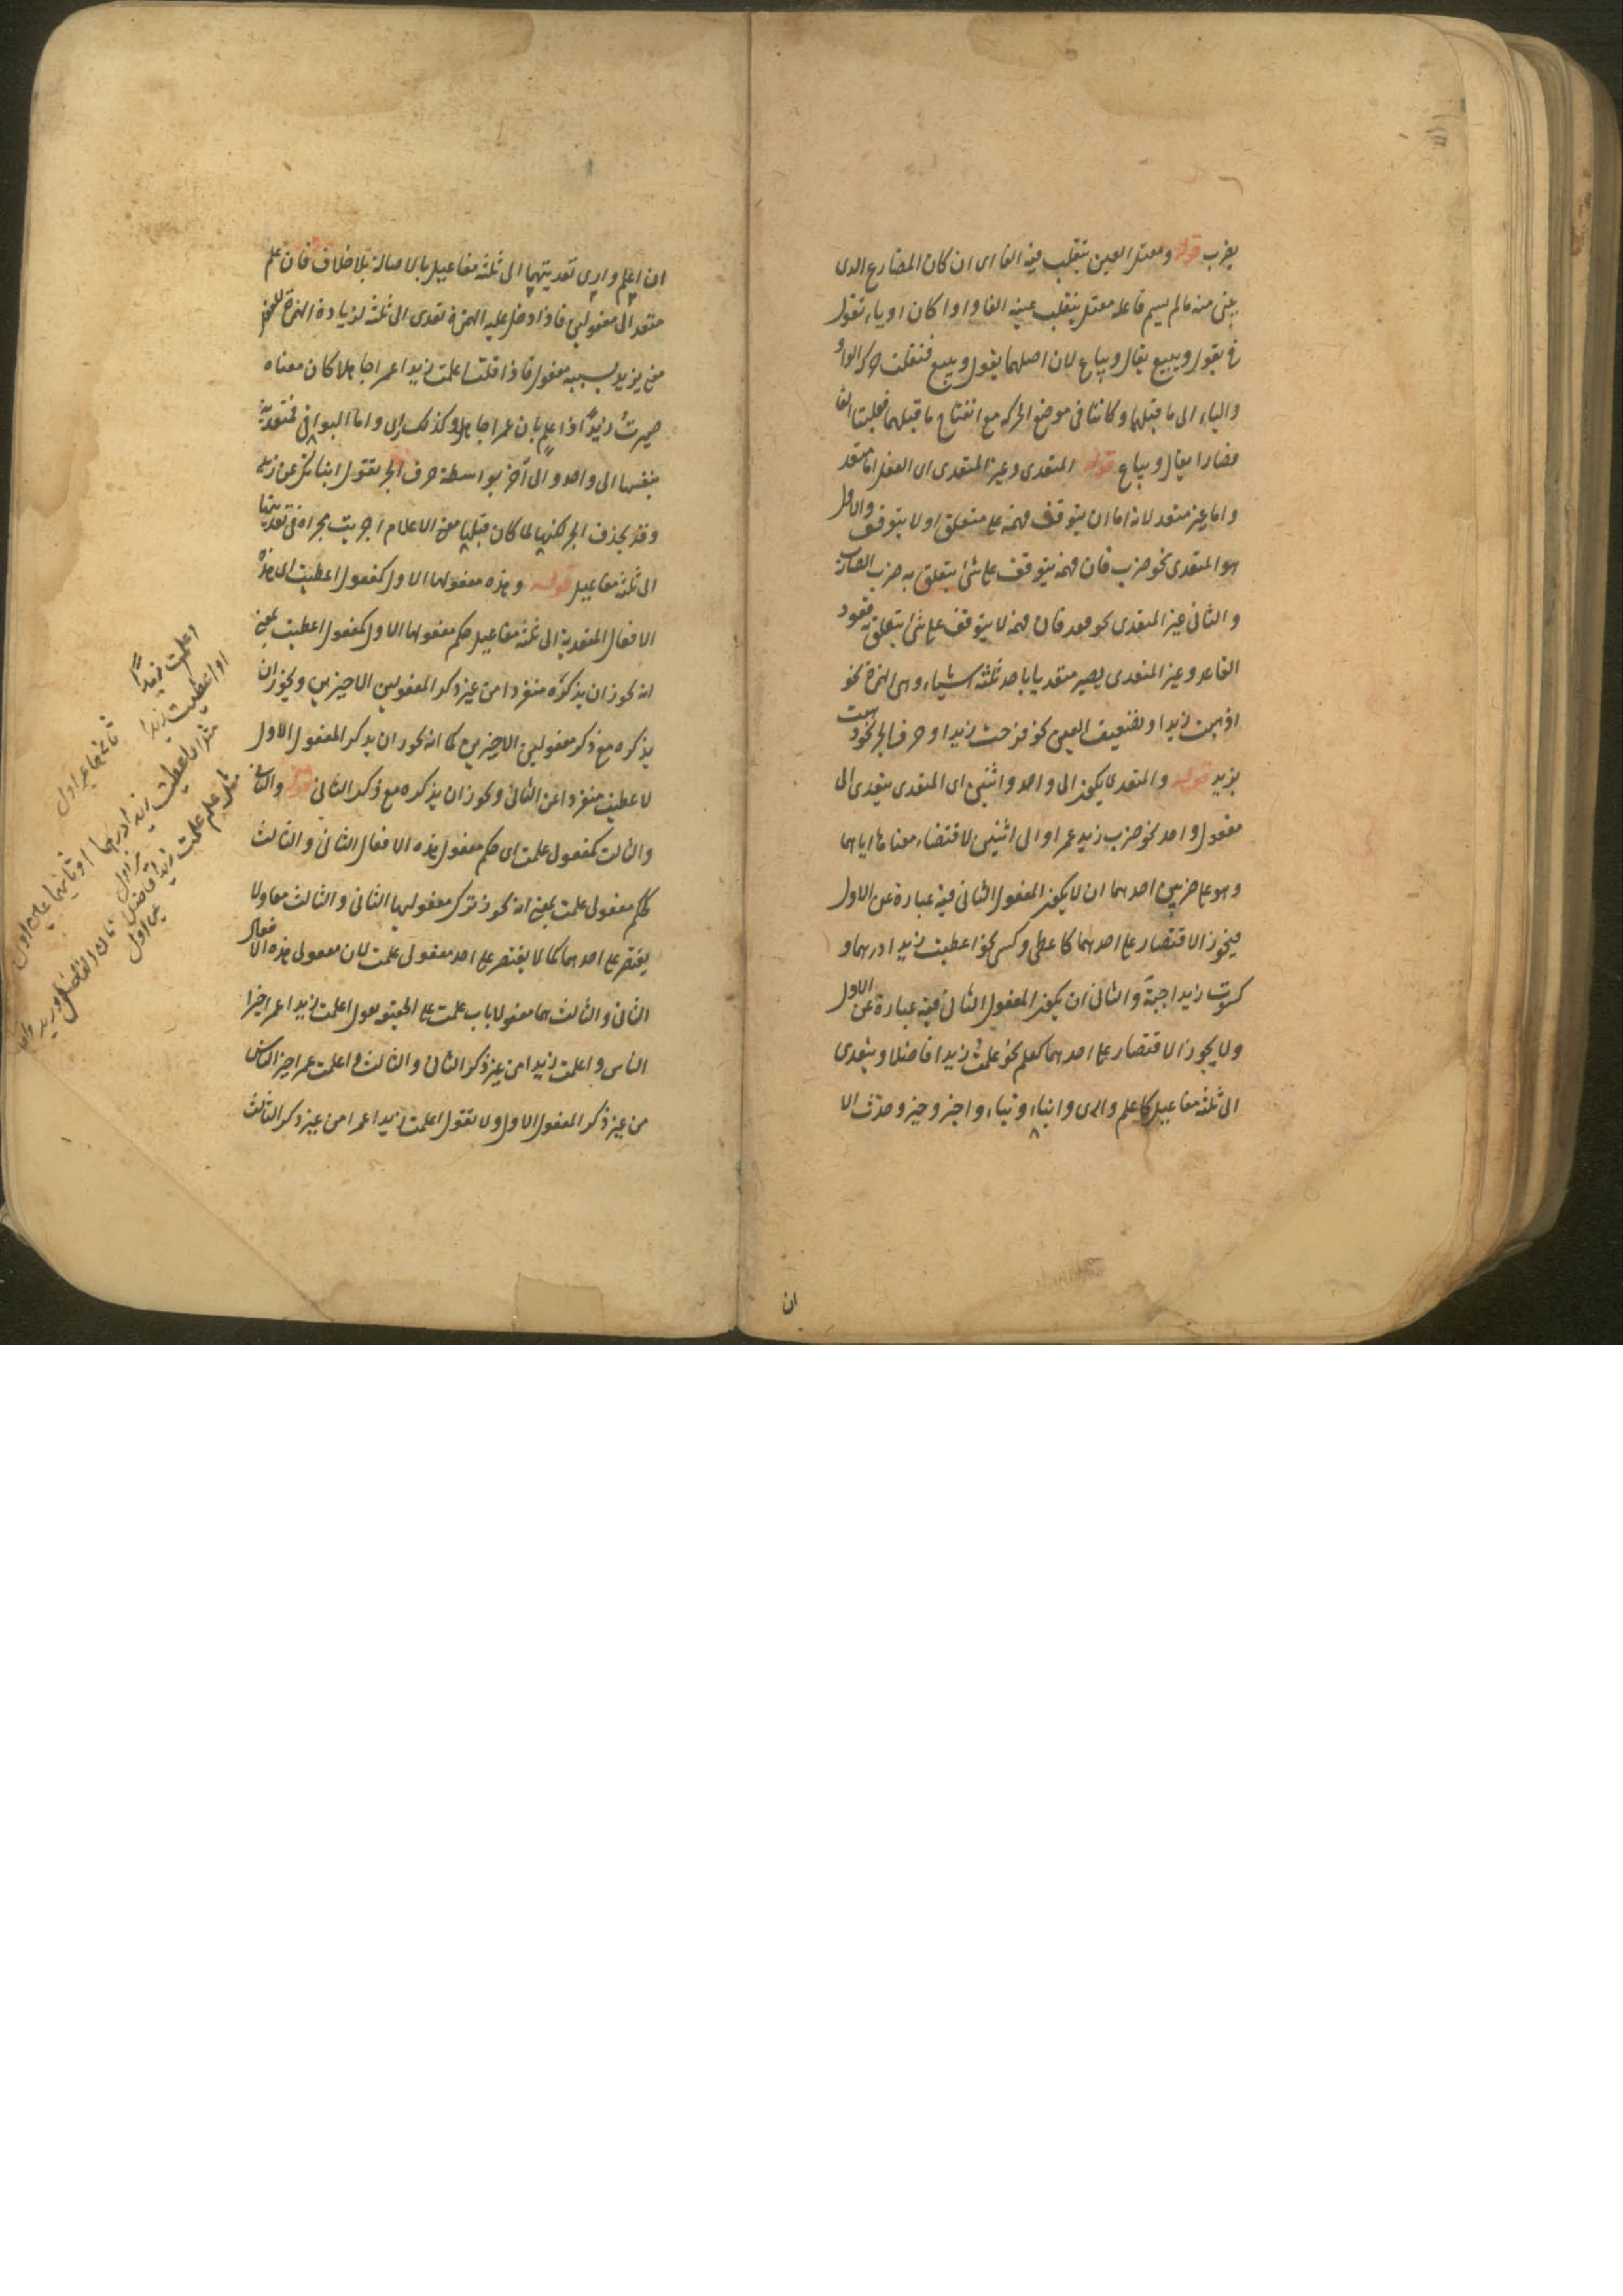 يضرب قوله ومعتل العين ينقلب فيه الفا اى ان كان المضارع الذى
يبنى منه مالم يسم فاعله معتل ينقلب عينه الفا واوا كان او ياء تقول
فى يقول ويبيع يقال ويباع لان اصلهما يقول ويبيع فنقلت حركة الواو
والياء الى ما قبلها وكانتا فى موضع الحركة مع انفتاح ما قبلهما فقلبتا الفا
فصارا يقال ويباع قوله المتعدى وغير المتعدى اى الفعل اما متعد
واما غير متعد لانه اما ان يتوقف فهمه على متعلق اولا يتوقف والاول
هو المتعدى نحو ضرب فان فهمه يتوقف على شئ يتعلق به ضرب الضارب
والثانى غير المتعدى نحو قعد فان فهمه لا يتوقف على شئ يتعلق به قعود
القاعد وغير المتعدى يصير متعديا باحد ثلثة اشياء وهى الهمزة نحو
اذهبت زيدا وتضعيف العين نحو فرحت زيدا وحرف الجر نحو ذهبت
بزيد قوله والمتعدى يكون الى واحد واثنين اى المتعدى يتعدى الى
مفعول واحد نحو ضرب زيد عمرا والى اثنين لاقتضاء معناها اياهما
وهو على ضربين احدهما ان لا يكون المفعول الثانى فيه عبارة عن الاول
فيجوز الاقتصار على احدهما كاعطى وكسى نحو اعطيت زيدا درهما و
كسوت زيدا جبة والثانى ان يكون المفعول الثانى فيه عبارة عن الاول
ولا يجوز الاقتصار على احدهما كعلم نحو علمت زيدا فاضلا ويتعدى
الى ثلثة مفاعيل كاعلم وارى وانباء ونباء واخبر وخبر وحدث الا
ان
ان اعلم وارى تعديتهما الى ثلثة مفاعيل بالاصالة بلا خلاف فان علم
متعد الى مفعولين فاذا دخل عليه الهمزة تعدى الى ثلثة لزيادة الهمزة
معنى يزيد بسببه مفعول فاذا قلت اعلمت زيدا عمرا جاهلا كان معناه
صيرت زيدا ذا علم بان عمرا جاهل وكذلك ارى واما البواقى فمتعدية
بنفسها الى واحد والى آخر بواسطة حرف الجر تقول انباتك عن زيد
وقد يحذف الجر لكنها لما كان فيها معنى الاعلام اجريت مجراه فى تعديتها
الى ثلثة مفاعيل قوله وهذه مفعولها الاول كمفعول اعطيت اى هذه
الافعال المتعدية الى ثلثة مفاعيل حكم مفعولها الاول كمفعول اعطيت يعنى
انه يجوز ان يذكره منفردا من غير ذكر المفعولين الاخيرين ويجوز ان
يذكره مع ذكر مفعولين الاخيرين كما انه يجوز ان يذكر المفعول الاول
لاعطيت منفردا عن الثانى ويجوز ان يذكره مع ذكر الثانى قوله والثانى
والثالث كمفعولى علمت اى حكم مفعول هذه الافعال الثانى والثالث
كحكم مفعولى علمت يعنى انه يجوز ترك مفعوليها الثانى والثالث معا ولا
يقتصر على احدهما كما لا يقتصر على احد مفعولى علمت لان مفعولى هذه الافعال
الثانى والثالث هما مفعولا باب علمت على الحقيقة تقول اعلمت زيدا عمرا خير
الناس واعلمت زيدا من غير ذكر الثانى والثالث واعلمت عمرا خير الناس
من غير ذكر المفعول الاول ولا تقول اعلمت زيدا عمرا من غير ذكر الثالث
اعلمت زيدا
او اعطيت زيدا
مثال اعطيت زيدا درهما
علمت زيدا فاضلا